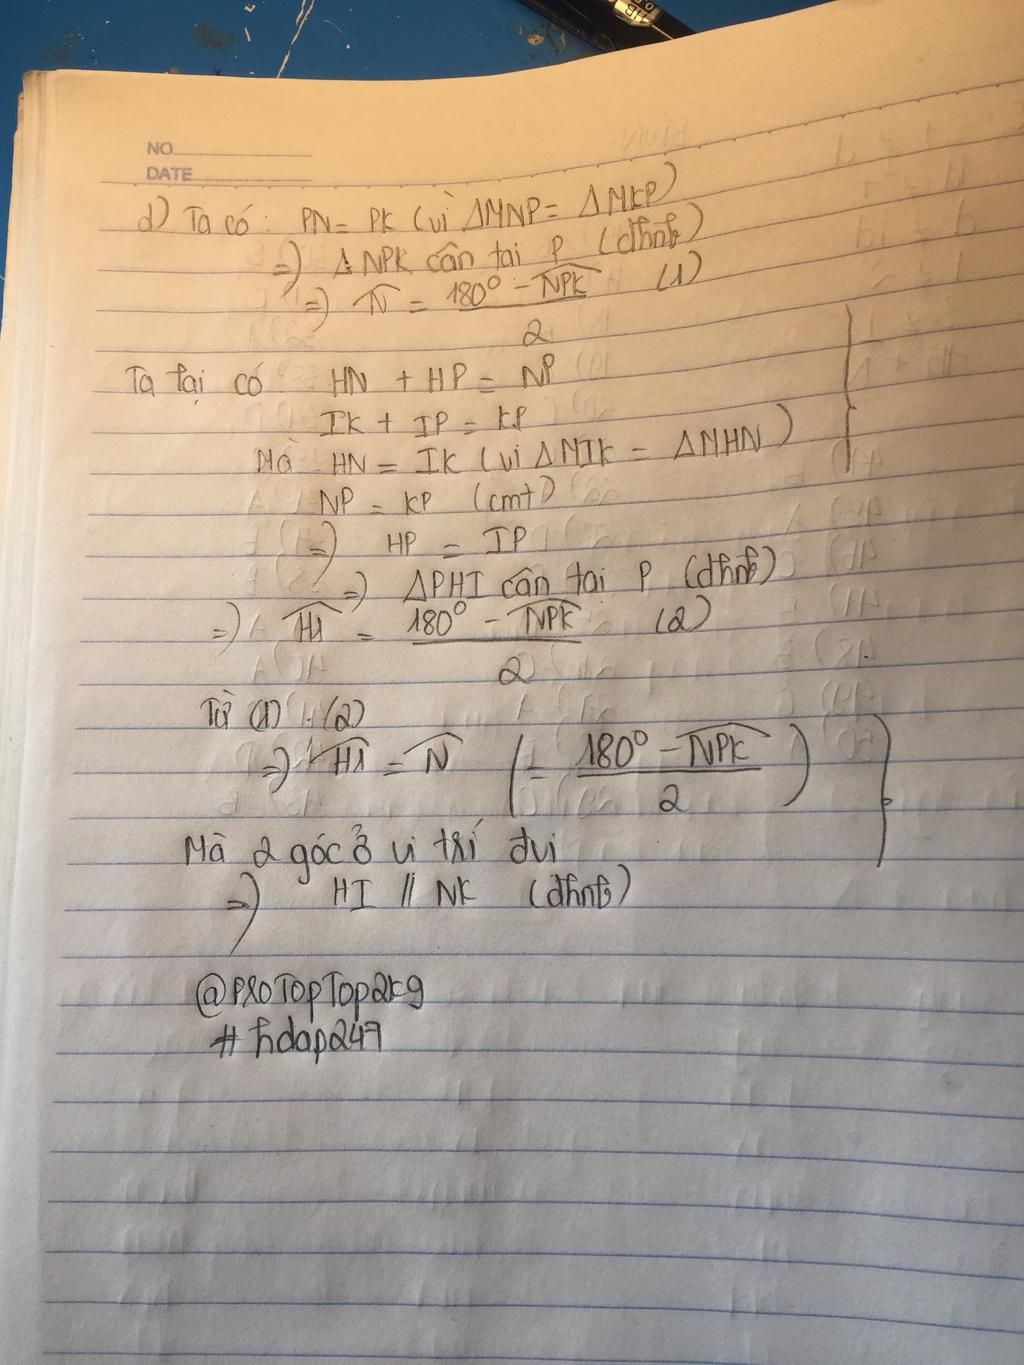 NO
DATE
d) Ta có: PN = PK (vì ΔMNP = ΔMKP)
=) ΔNPK cân tại P (dhnb)
=) N̂ = (180° - NPK)/2 (1)
Ta lại có HN + HP = NP
IK + IP = KP
Mà HN = IK (vì ΔMIK = ΔMHN)
NP = KP (cmt)
=) HP = IP
=) ΔPHI cân tại P (dhnb)
=) Ĥ1 = (180° - NPK)/2 (2)
Từ (1) (2)
=) Ĥ1 = N̂ (= (180° - NPK)/2)
Mà 2 góc ở vị trí đvị
=) HI // NK (dhnb)
@ProTopTop2k9
#hdap247